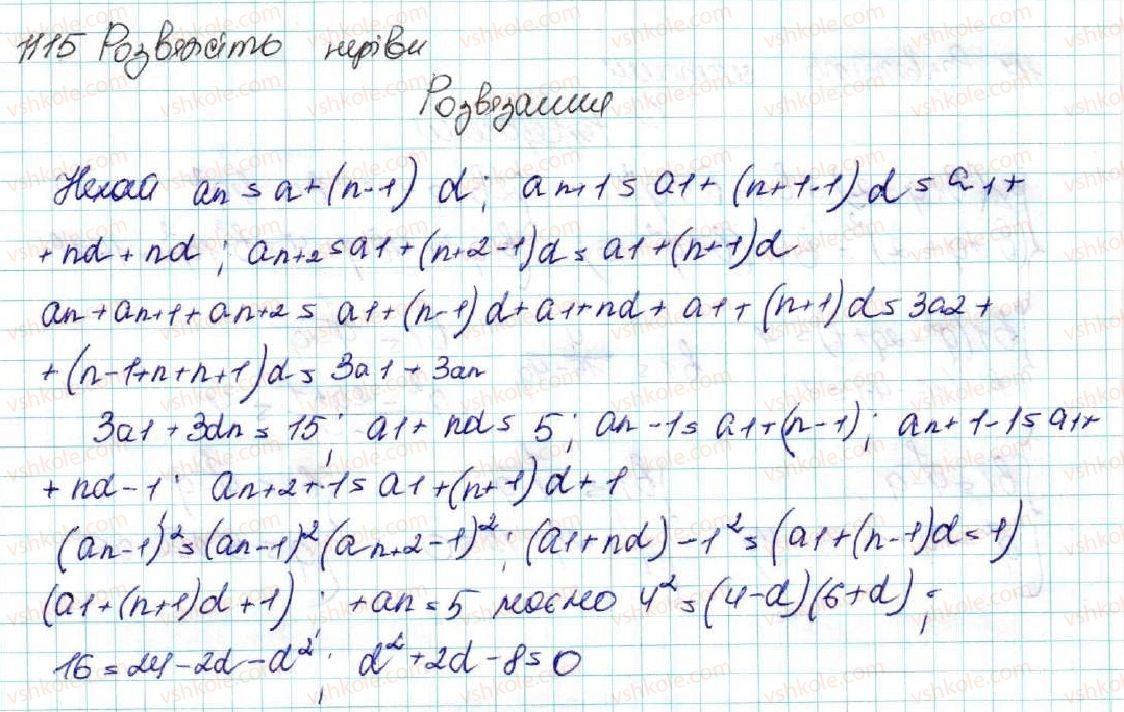 1115 Розвяжіть неріви
Розвязання
Нехай an = a + (n-1) d; an+1 = a1 + (n+1-1) d = a1+
+ nd + nd ; an+2 = a1 + (n+2-1)d = a1 + (n+1)d
an + an+1 + an+2 = a1 + (n-1)d + a1 + nd + a1 + (n+1)d = 3a2 +
+ (n-1+n+n+1)d = 3a1 + 3an
3a1 + 3dn = 15; a1 + nd = 5; an -1 = a1 + (n-1); an+1-1 = a1+
+ nd - 1; an+2 + 1 = a1 + (n+1)d + 1
(an-1)² = (an-1)² (an+2-1)²; (a1+nd) - 1² = (a1 + (n-1)d = 1)
(a1 + (n+1)d + 1); + an = 5 маємо 4² = (4-d)(6+d);
16 = 24 - 2d - d²; d² + 2d - 8 = 0